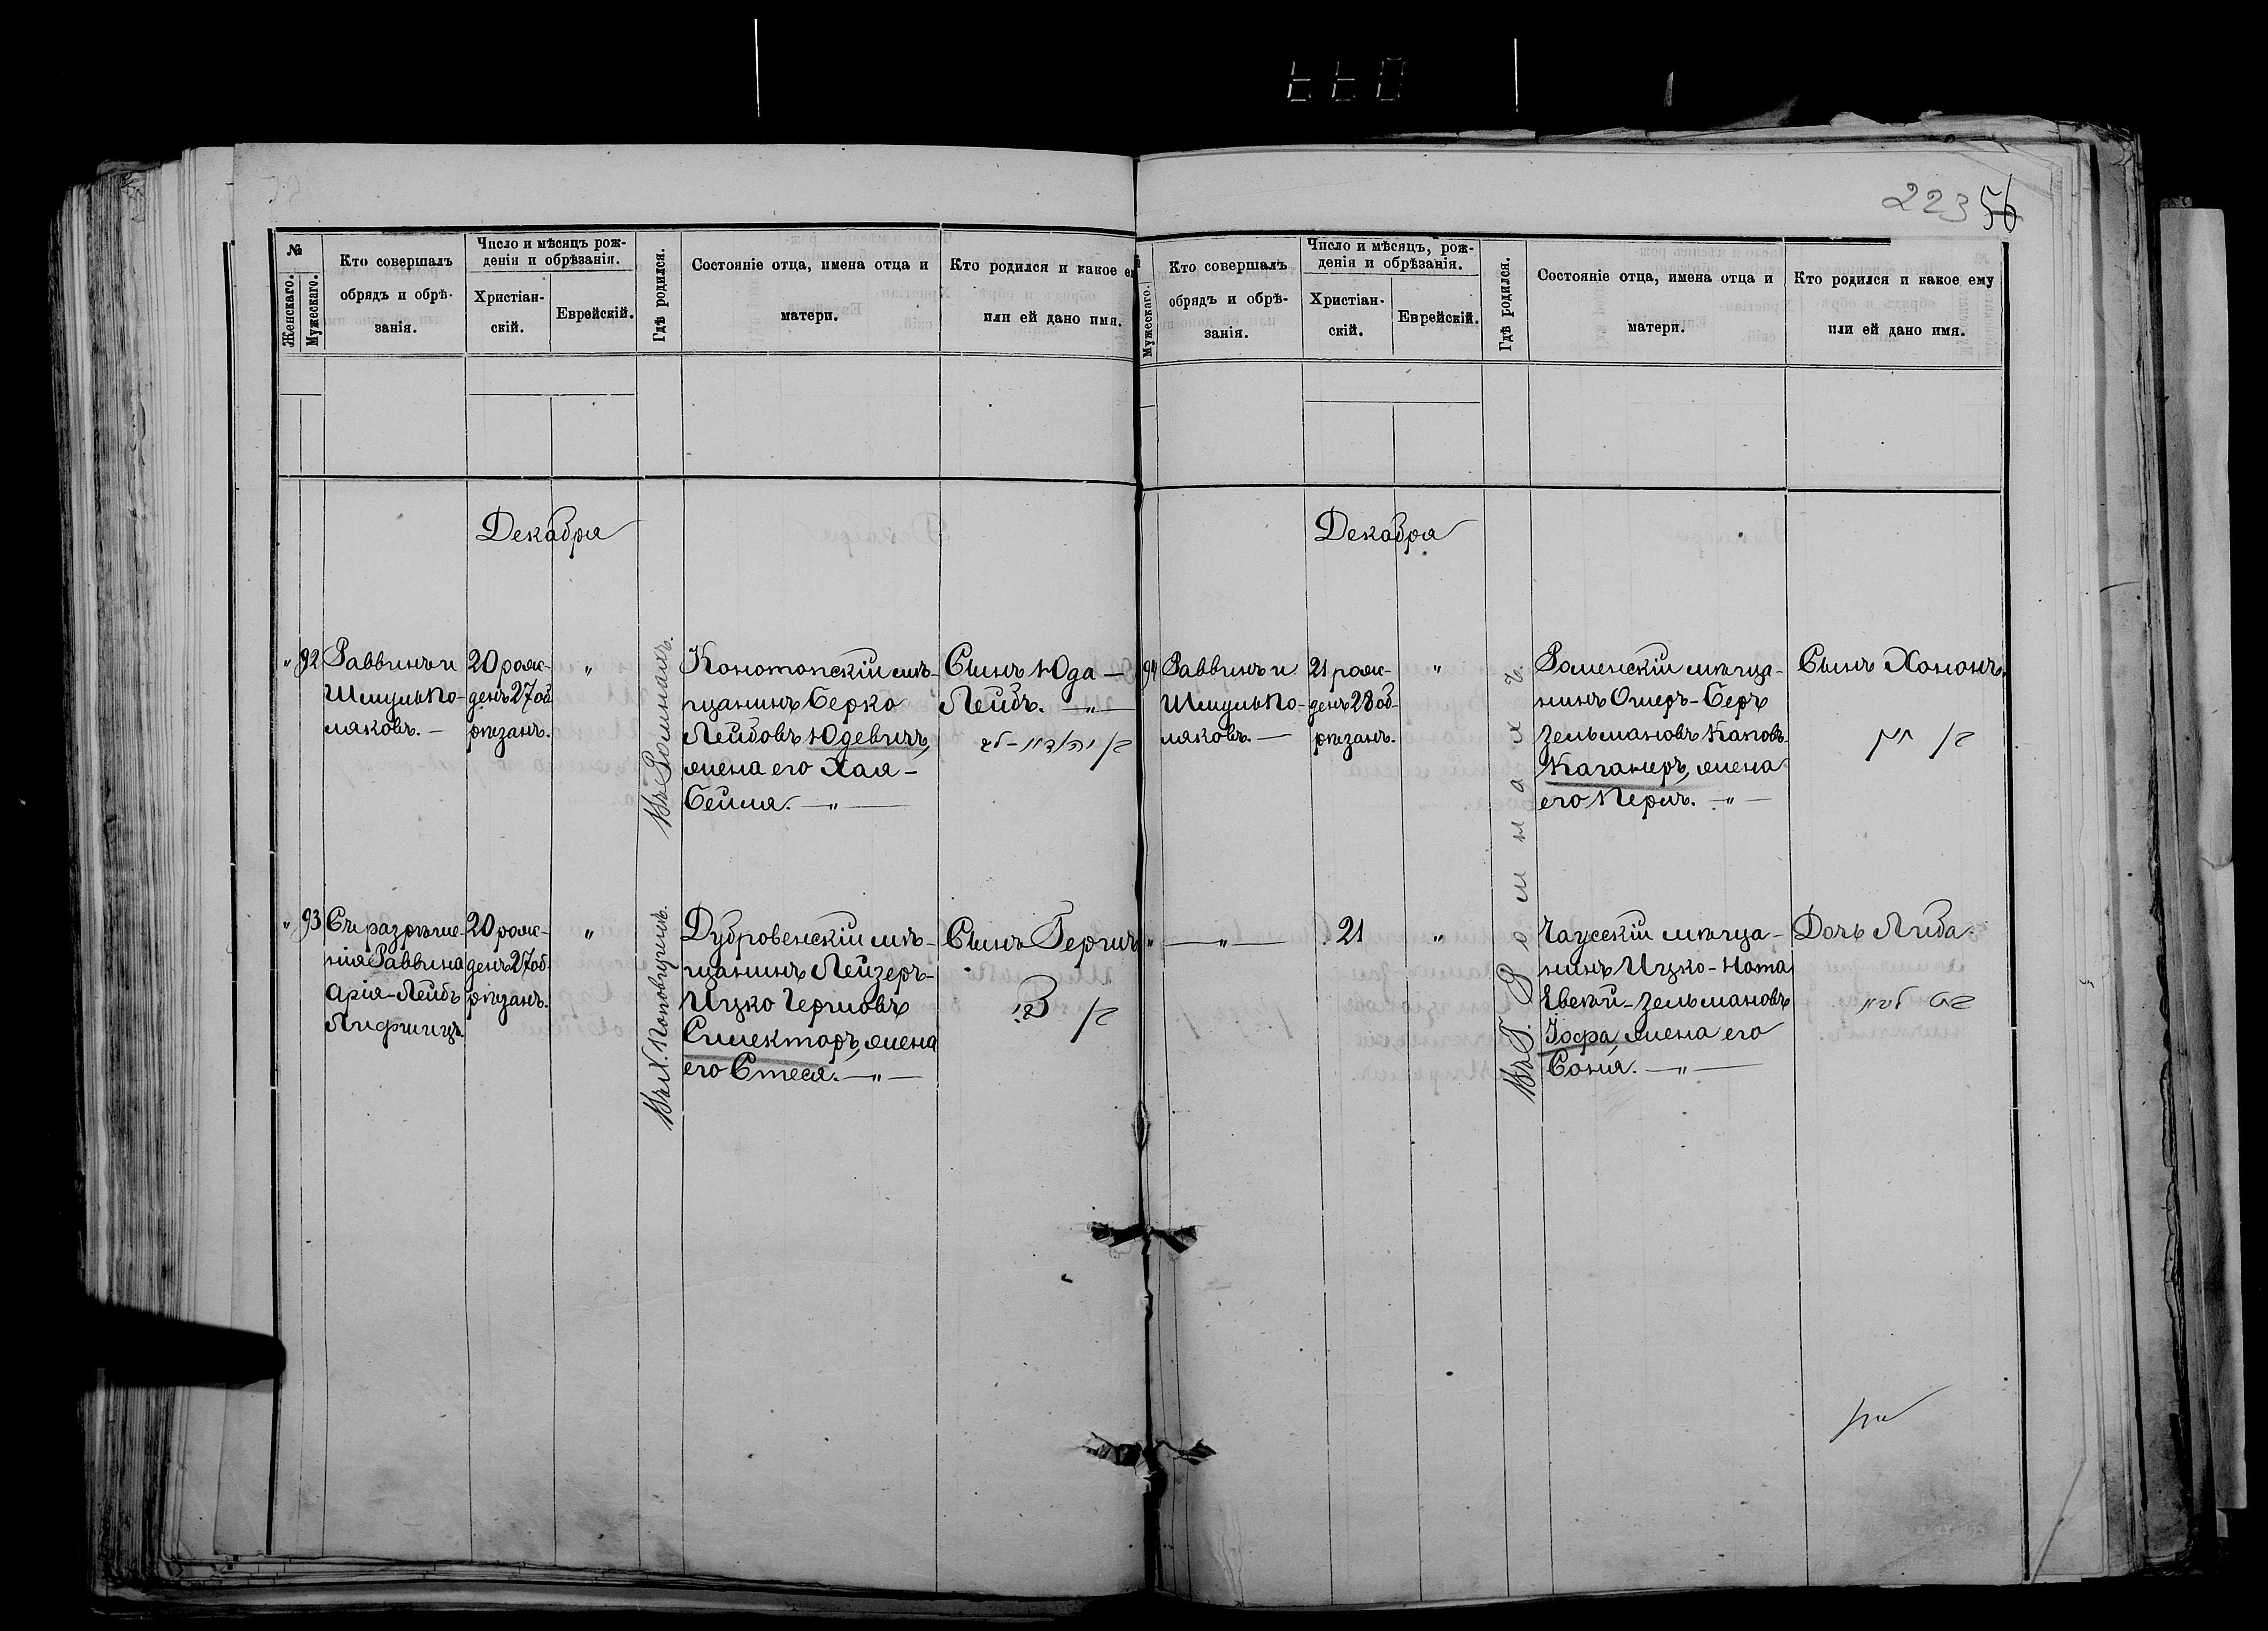 223 56
№
Женскаго.
Мужескаго.
Кто совершалъ
обрядъ и обрѣ-
занія.
Число и мѣсяцъ рож-
денія и обрѣзанія.
Христіан-
скій.
Еврейскій.
Гдѣ родился.
Состояніе отца, имена отца и
матери.
Кто родился и какое ем
или ей дано имя.
Декабря
" 92
Раввинъ и
Шмуль По-
ляковъ. —
20 рож-
денъ 27 об
рѣзанъ.
"
Въ Ромнахъ.
Конотопскій мѣ-
щанинъ Берко
Лейбовъ Юдевичъ,
жена его Хая-
Бейля. — " —
Сынъ Юда —
Лейбъ. — " —
" 93
Съ разрѣше-
нія Раввина
Арія-Лейбъ
Лифшицъ.
20 рож-
денъ 27 об-
рѣзанъ.
"
Дубровенскій мѣ-
щанинъ Лейзеръ-
Ицко Гершовъ
Спекторъ, жена
его Стеся. — " —
Сынъ Гершъ
Мужескаго.
Кто совершалъ
обрядъ и обрѣ-
занія.
Число и мѣсяцъ, рож-
денія и обрѣзанія.
Христіан-
скій.
Еврейскій.
Гдѣ родился.
Состояніе отца, имена отца и
матери.
Кто родился и какое ему
или ей дано имя.
Декабря
94
Раввинъ и
Шмуль По-
ляковъ. —
21 рож-
денъ 28 об-
рѣзанъ.
"
Въ Г. Ромнахъ.
Роменскій мѣща-
нинъ Ошеръ-Беръ
Зельмановъ
Каганеръ, жена
его Перлъ. — " —
Сынъ Хононъ.
" — " —
21
"
Чаусскій мѣща-
нинъ Ицко-Нота
Зельмановъ
Іофа, жена его
Соня. — " —
Дочь Либа.